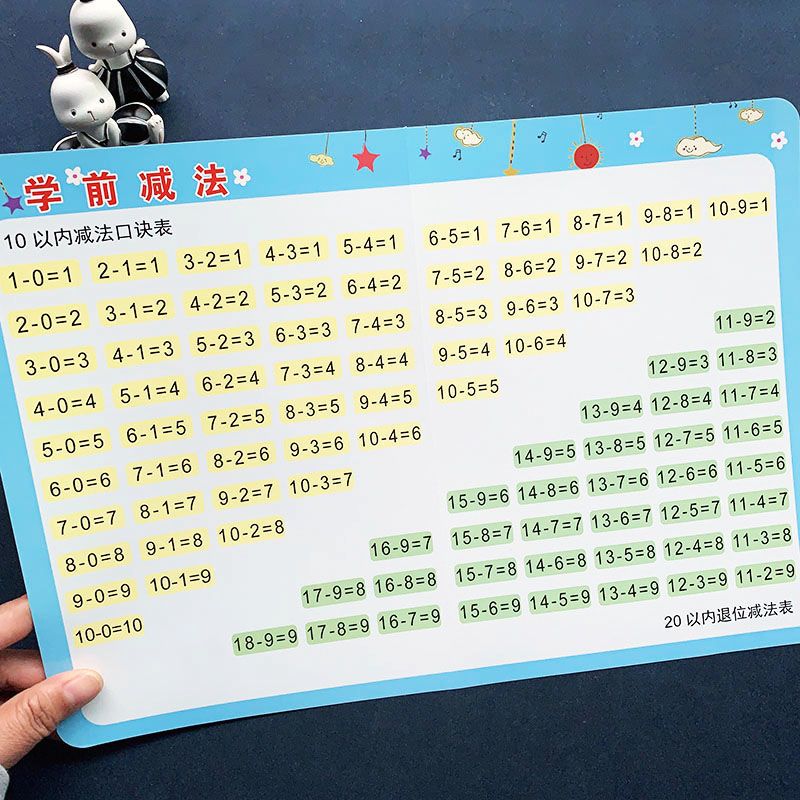 学前减法
10以内减法口诀表
1-0=1 2-1=1 3-2=1 4-3=1 5-4=1 6-5=1 7-6=1 8-7=1 9-8=1 10-9=1
2-0=2 3-1=2 4-2=2 5-3=2 6-4=2 7-5=2 8-6=2 9-7=2 10-8=2
3-0=3 4-1=3 5-2=3 6-3=3 7-4=3 8-5=3 9-6=3 10-7=3
4-0=4 5-1=4 6-2=4 7-3=4 8-4=4 9-5=4 10-6=4
5-0=5 6-1=5 7-2=5 8-3=5 9-4=5 10-5=5
6-0=6 7-1=6 8-2=6 9-3=6 10-4=6
7-0=7 8-1=7 9-2=7 10-3=7
8-0=8 9-1=8 10-2=8
9-0=9 10-1=9
10-0=10
11-9=2
12-9=3 11-8=3
13-9=4 12-8=4 11-7=4
14-9=5 13-8=5 12-7=5 11-6=5
15-9=6 14-8=6 13-7=6 12-6=6 11-5=6
16-9=7 15-8=7 14-7=7 13-6=7 12-5=7 11-4=7
17-9=8 16-8=8 15-7=8 14-6=8 13-5=8 12-4=8 11-3=8
18-9=9 17-8=9 16-7=9 15-6=9 14-5=9 13-4=9 12-3=9 11-2=9
20以内退位减法表